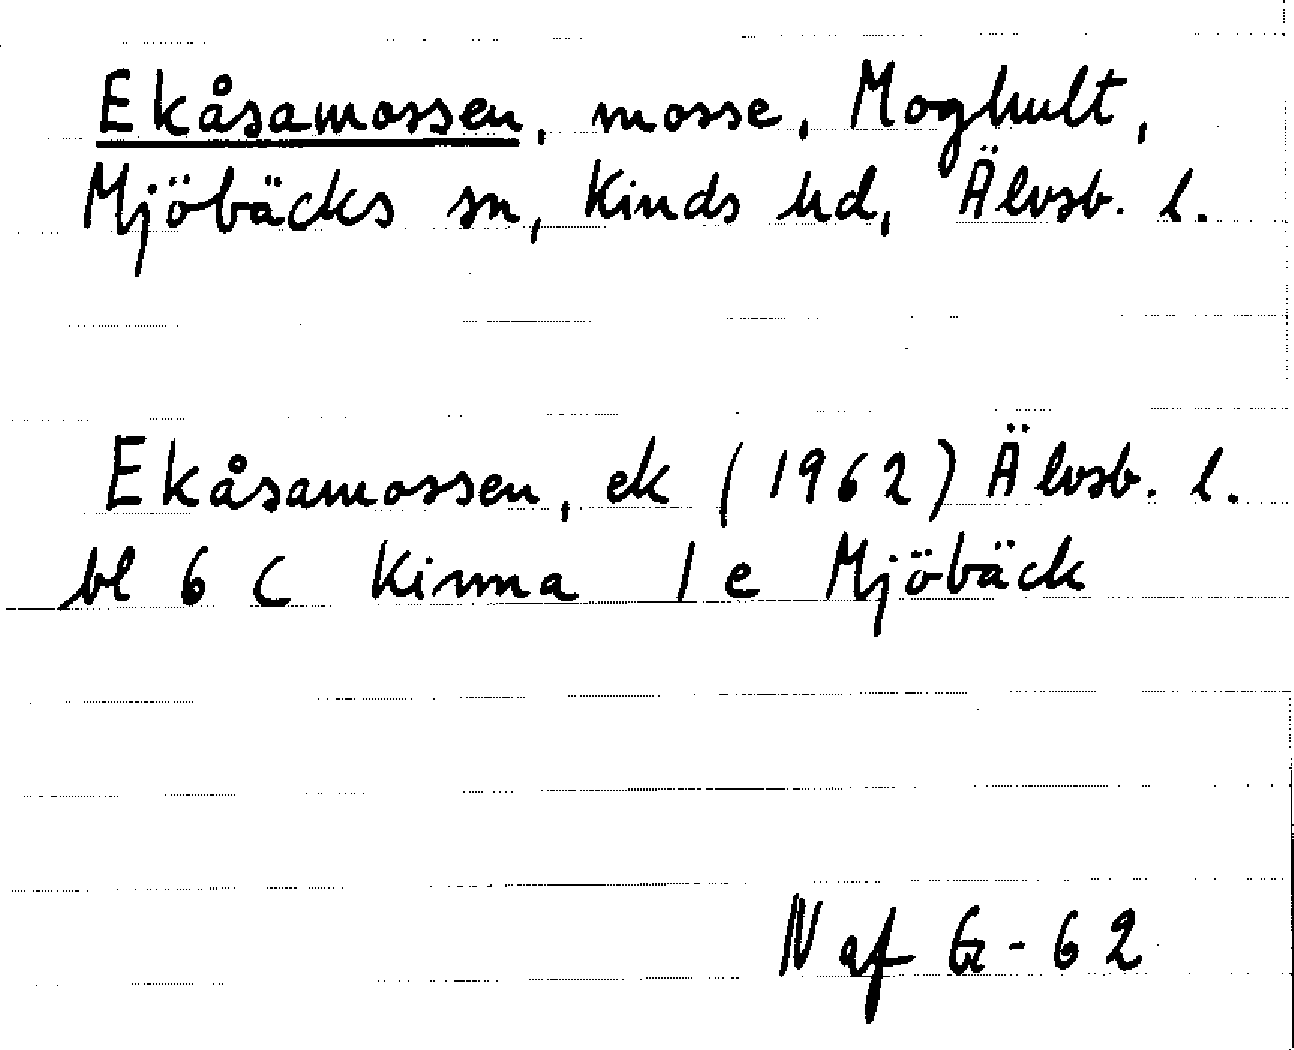 Ekåsamossen, mosse, Moghult,
Mjöbäcks sn, Kinds hd, Älvsb. l.
Ekåsamossen, ek (1962) Älvsb. l.
bl 6 C Kinna 1 e Mjöbäck
N af G-62